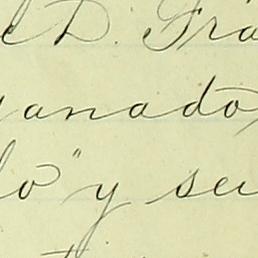 D. Fra
anado
lo" y se